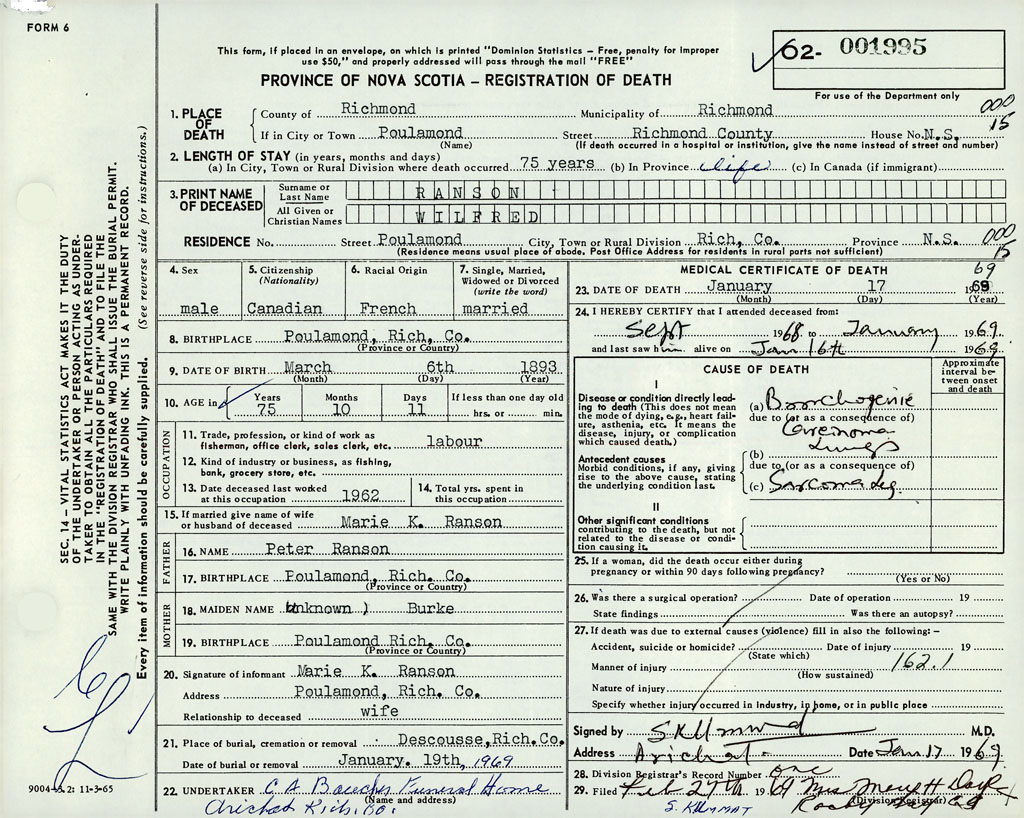 FORM 6
This form, if placed in an envelope, on which is printed "Dominion Statistics – Free, penalty for improper
use $50," and properly addressed will pass through the mail "FREE"
PROVINCE OF NOVA SCOTIA – REGISTRATION OF DEATH
62- 001995
For use of the Department only
000
15
1. PLACE OF DEATH
County of Richmond Municipality of Richmond
If in City or Town Poulamond Street Richmond County House No. N.S.
(Name) (If death occurred in a hospital or institution, give the name instead of street and number)
2. LENGTH OF STAY (in years, months and days)
(a) In City, Town or Rural Division where death occurred 75 years (b) In Province Life (c) In Canada (if immigrant)
3. PRINT NAME OF DECEASED
Surname or Last Name RANSON
All Given or Christian Names WILFRED
RESIDENCE No. Street Poulamond City, Town or Rural Division Rich, Co. Province N.S. 000
15
(Residence means usual place of abode. Post Office Address for residents in rural parts not sufficient)
4. Sex male
5. Citizenship (Nationality) Canadian
6. Racial Origin French
7. Single, Married, Widowed or Divorced (write the word) married
8. BIRTHPLACE Poulamond, Rich, Co.
(Province or Country)
9. DATE OF BIRTH March 6th 1893
(Month) (Day) (Year)
10. AGE in Years 75 Months 10 Days 11 If less than one day old hrs. or min.
OCCUPATION
11. Trade, profession, or kind of work as fisherman, office clerk, sales clerk, etc. labour
12. Kind of industry or business, as fishing, bank, grocery store, etc.
13. Date deceased last worked at this occupation 1962
14. Total yrs. spent in this occupation
15. If married give name of wife or husband of deceased Marie K. Ranson
FATHER
16. NAME Peter Ranson
17. BIRTHPLACE Poulamond, Rich. Co.
(Province or Country)
MOTHER
18. MAIDEN NAME unknown ) Burke
19. BIRTHPLACE Poulamond Rich. Co.
(Province or Country)
20. Signature of informant Marie K. Ranson
Address Poulamond, Rich. Co.
Relationship to deceased wife
21. Place of burial, cremation or removal Descousse, Rich. Co.
Date of burial or removal January. 19th, 1969
22. UNDERTAKER C. A. Funeral Home
(Name and address)
Arichat Rich. Co.
MEDICAL CERTIFICATE OF DEATH
69
23. DATE OF DEATH January 17 1969
(Month) (Day) (Year)
24. I HEREBY CERTIFY that I attended deceased from:
Sept 1968 to January 1969
and last saw him alive on Jan 16th 1969
CAUSE OF DEATH
Approximate interval between onset and death
I
Disease or condition directly leading to death (This does not mean the mode of dying, e.g., heart failure, asthenia, etc. It means the disease, injury, or complication which caused death.)
(a) Bronchogenic
due to (or as a consequence of)
Carcinoma
Lungs
Antecedent causes
Morbid conditions, if any, giving rise to the above cause, stating the underlying condition last.
(b)
due to (or as a consequence of)
(c) Sarcoma
II
Other significant conditions
contributing to the death, but not related to the disease or condition causing it.
25. If a woman, did the death occur either during
pregnancy or within 90 days following pregnancy?
(Yes or No)
26. Was there a surgical operation? Date of operation 19
State findings Was there an autopsy?
27. If death was due to external causes (violence) fill in also the following: –
Accident, suicide or homicide? Date of injury 19
(State which)
Manner of injury 162.1
(How sustained)
Nature of injury
Specify whether injury occurred in industry, in home, or in public place
Signed by M.D.
Address Arichat Date Jan. 17 1969
28. Division Registrar's Record Number one
29. Filed Feb 27th 1969 Mrs
(Division Registrar)
SEC. 14 – VITAL STATISTICS ACT MAKES IT THE DUTY
OF THE UNDERTAKER OR PERSON ACTING AS UNDER-
TAKER TO OBTAIN ALL THE PARTICULARS REQUIRED
IN THE "REGISTRATION OF DEATH" AND TO FILE THE
SAME WITH THE DIVISION REGISTRAR WHO SHALL ISSUE THE BURIAL PERMIT.
WRITE PLAINLY WITH UNFADING INK. THIS IS A PERMANENT RECORD.
Every item of information should be carefully supplied. (See reverse side for instructions.)